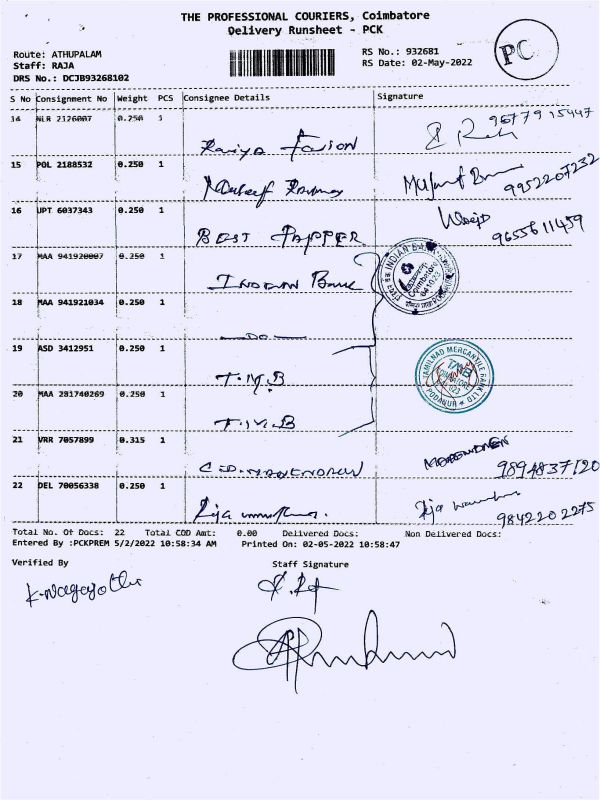 THE PROFESSIONAL COURIERS, Coimbatore
Delivery Runsheet - PCK
PC
Route: ATHUPALAM
Staff: RAJA
DRS No.: DCJB93268102
RS No.: 932681
RS Date: 02-May-2022
S No Consignment No Weight PCS Consignee Details Signature
14 NLR 2126007 0.250 1 9677915447
15 POL 2188532 0.250 1 9952207232
16 UPT 6037343 0.250 1 BEST PAPPER 9655611459
17 MAA 941920007 0.250 1 INDIAN Bank
18 MAA 941921034 0.250 1 DO
19 ASD 3412951 0.250 1 T.M.B
20 MAA 281740269 0.250 1 T.M.B
21 VRR 7057899 0.315 1 9894837120
22 DEL 70056338 0.250 1 9842202275
INDIAN BANK
Coimbatore
641023
TAMILNAD MERCANTILE BANK LTD.
TMB
PODANUR
Total No. Of Docs: 22 Total COD Amt: 0.00 Delivered Docs: Non Delivered Docs:
Entered By :PCKPREM 5/2/2022 10:58:34 AM Printed On: 02-05-2022 10:58:47
Verified By Staff Signature